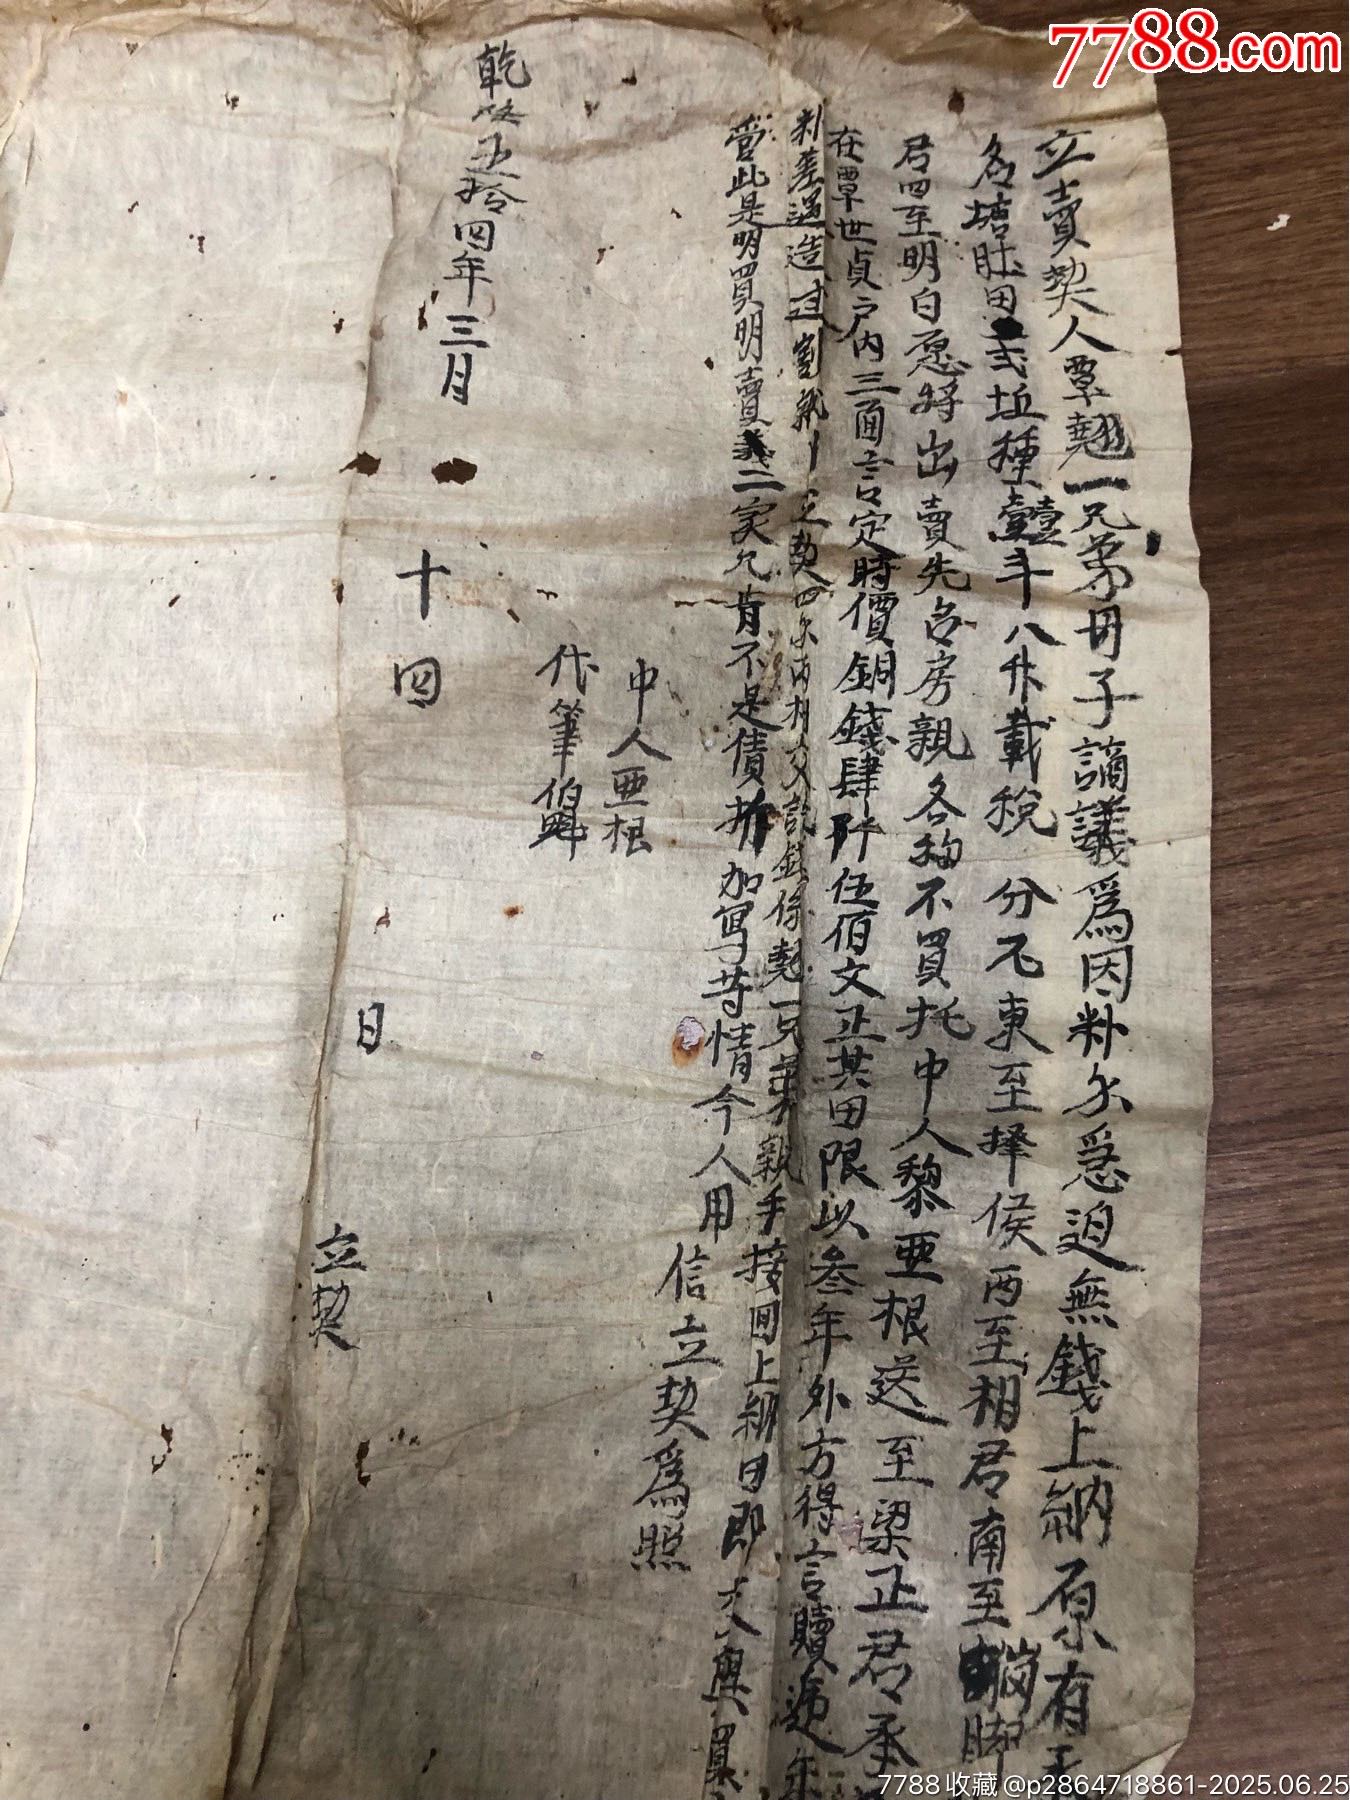 7788.com
立賣契人覃翹一兄弟毋子謫議爲因粋尓爲迫無錢上納原有
名塘肚田弍坵種壹斗八升載稅 分不東至擇侯西至相君南至崗脚
君四至明白愿將出賣先召房親各鄉不買托中人黎亜根送至梁正君承
在覃世貞户内三面言定時價銅錢肆阡伍佰文正其田限以叁年外方得言贖遞年
差遇造过割 立契四尓兩相交 錢係翹一兄弟親手接回上納田即交與買
管此是明買明賣義二家允肯不是債折加寫等情今人用信立契爲照
中人亜根
代筆伯魁
乾隆五拾四年三月
十四
日
立契
7788收藏@p2864718861-2025.06.25